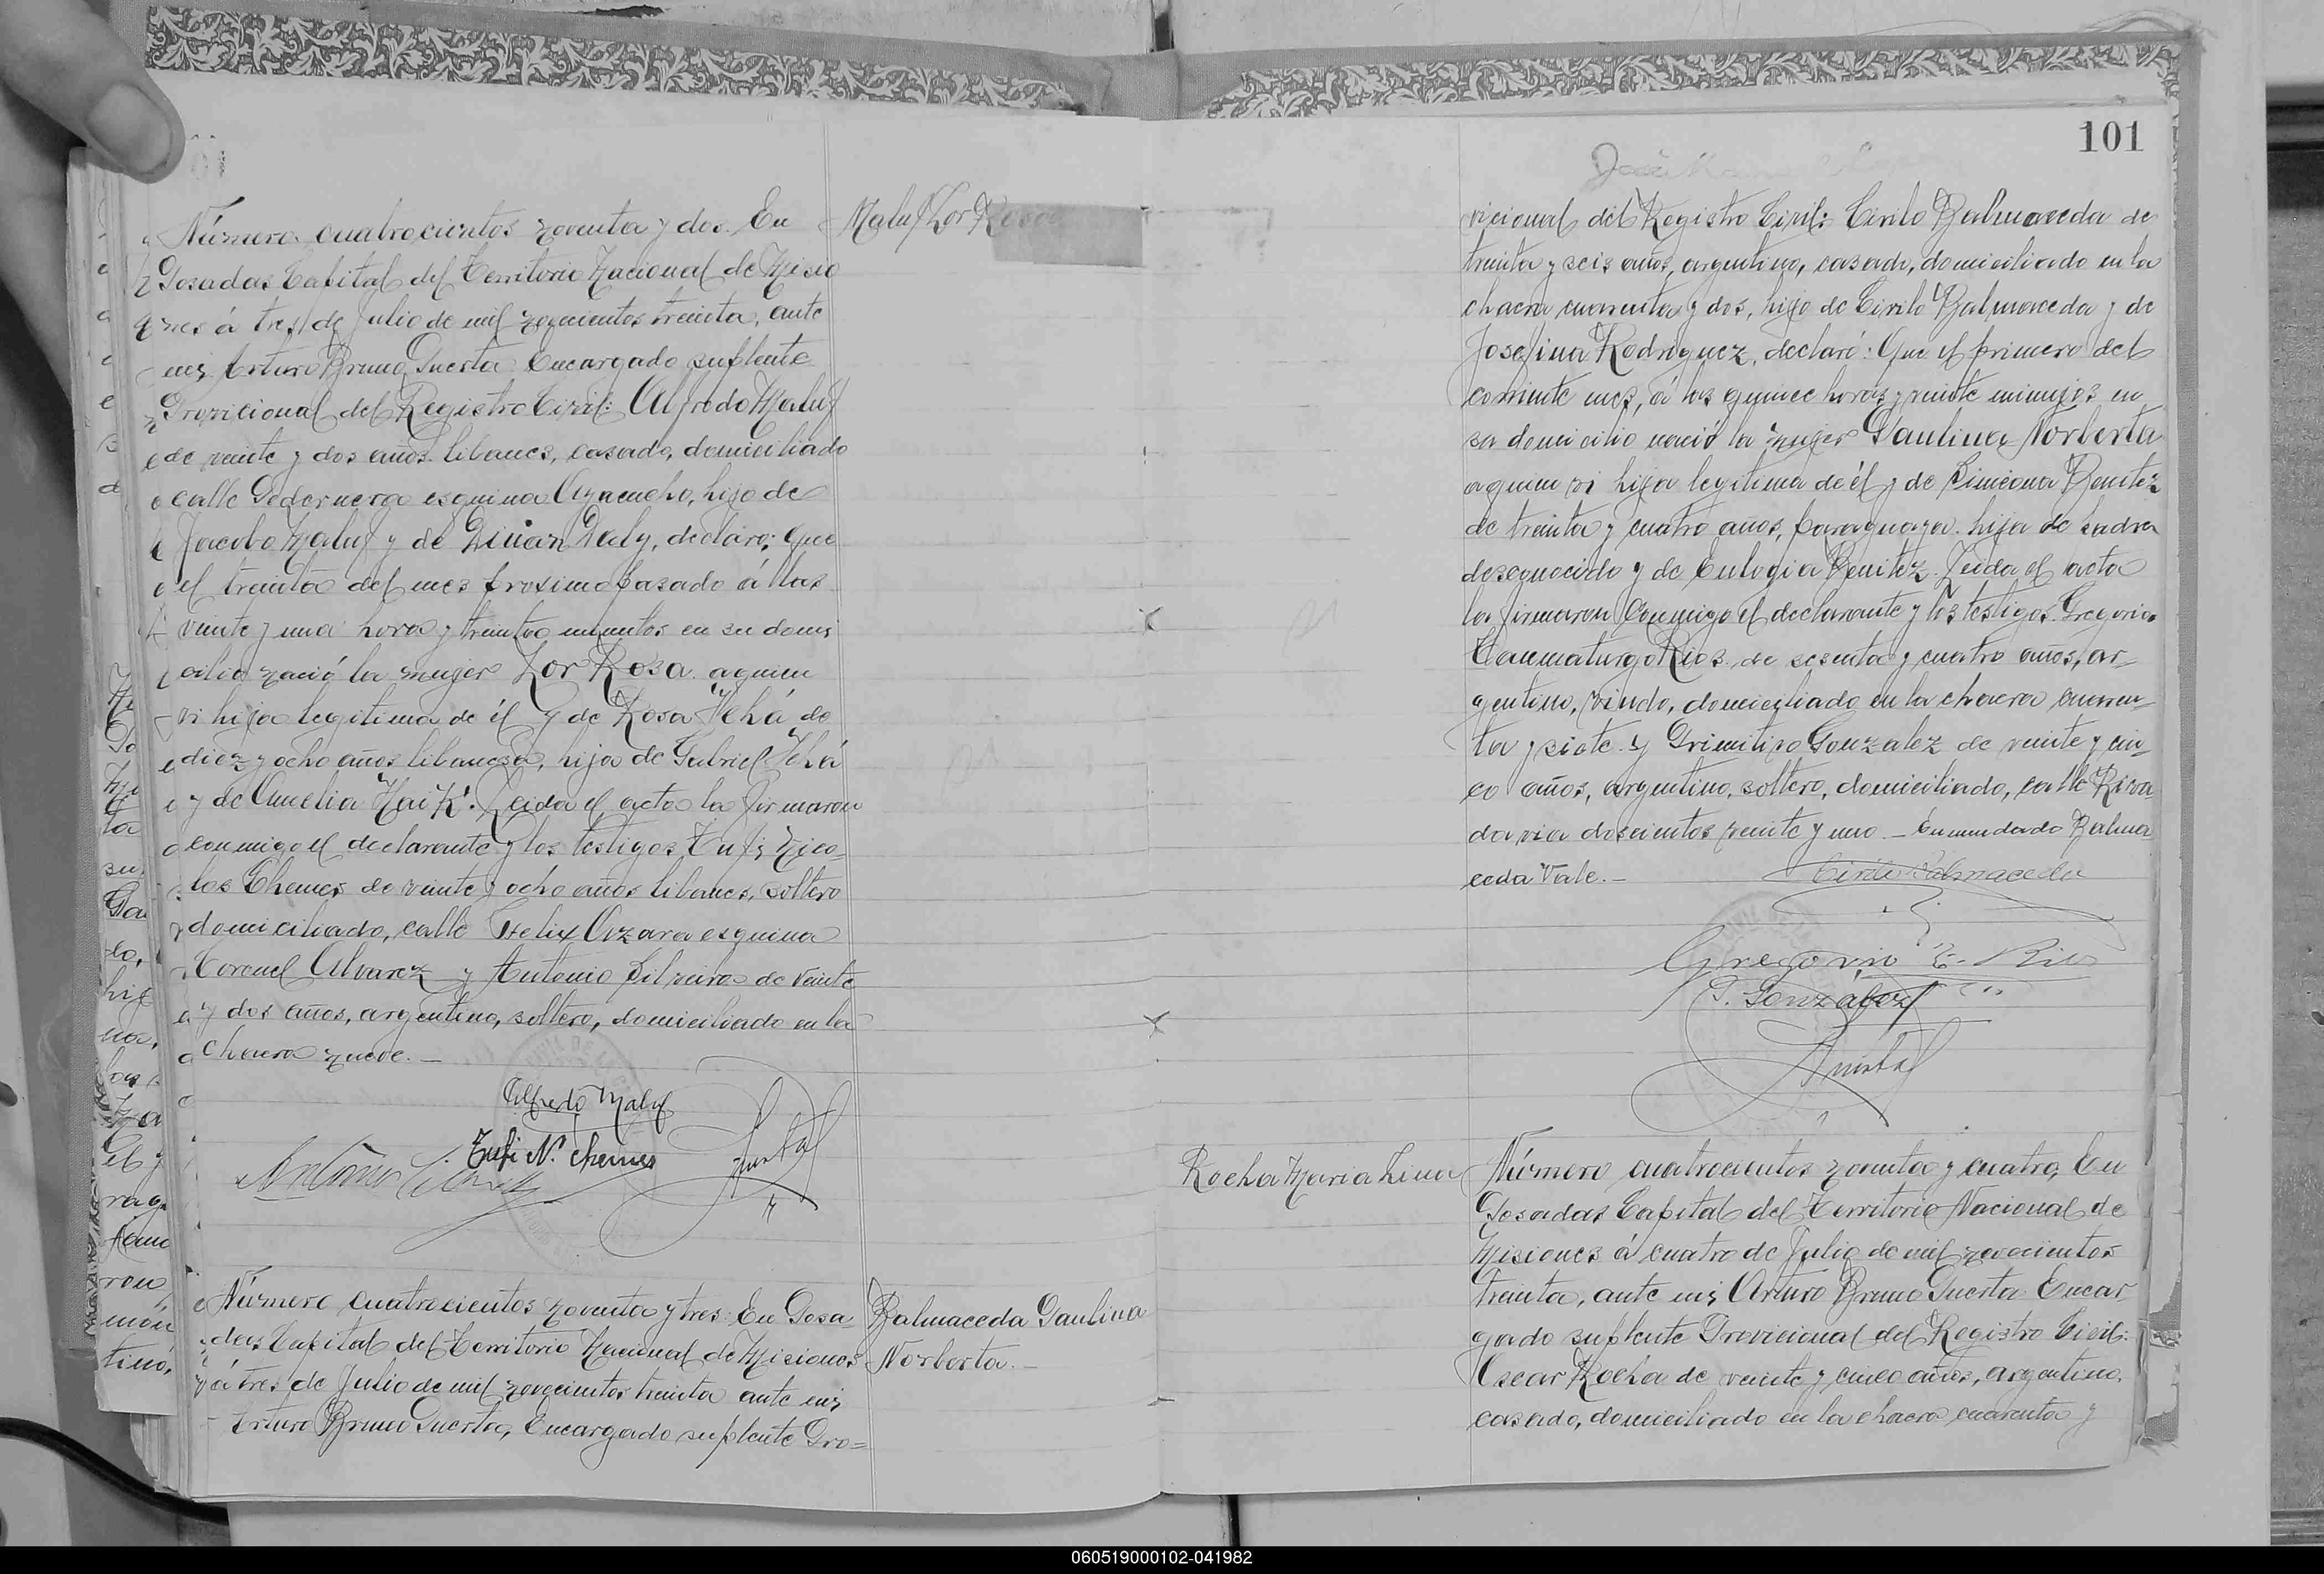 Número cuatrocientos noventa y dos. En
Posadas Capital del Territorio Nacional de Misio
nes á tres de Julio de mil novecientos treinta, ante
mi, Arturo Bruno Puerta Encargado suplente
Provicional del Registro Civil: Alfredo Maluf
de veinte y dos años libanes, casado, domiciliado
calle Pedernera esquina Ayacucho, hijo de
Jacobo Maluf y de Daly, declaró: Que
el treinta del mes proximo pasado á las
veinte y una horas y treinta minutos en su domi
cilio nació la mujer Lor Rosa aquien
vi hija legitima de él y de Rosa Jehá de
diez y ocho años libanesa, hija de Gabriel Jehá
y de Amelia Haik. Leida el acta la firmaron
conmigo el declarante y los testigos Tufi Nico-
las Chemes de veinte y ocho años libanes, soltero
domiciliado, calle Felix Azara esquina
Coronel Alvarez y Antonio Silveira de veinte
y dos años, argentino, soltero, domiciliado en la
chacra nueve.-
Maluf Lor Rosa
Alfredo Maluf
Tufi N. Chemes
Antonio
Número cuatrocientos noventa y tres. En Posa-
das Capital del Territorio Nacional de Misiones
á tres de Julio de mil novecientos treinta ante mi
Arturo Bruno Puerta, Encargado suplente Pro=
Balmaceda Paulina
Norberta.-
101
vicional del Registro Civil: Cirilo Balmaceda de
treinta y seis años, argentino, casado, domiciliado en la
chacra cuarenta y dos, hijo de Cirilo Balmaceda y de
Josefina Rodriguez, declaró: Que el primero del
corriente mes, á las quince horas y veinte minutos en
su domicilio nació la mujer Paulina Norberta
aquien vi hija legitima de él y de Simeona Benitez
de treinta y cuatro años, paraguaya hija de padre
desconocido y de Eulogia Benitez. Leida el acta
la firmaron conmigo el declarante y los testigos Gregorio
Taumaturgo Rios de sesenta y cuatro años, ar-
gentino, viudo, domiciliado en la chacra cuaren-
ta y siete y Primitivo Gonzalez de veinte y cin-
co años, argentino, soltero, domiciliado, calle Riva
davia doscientos veinte y uno - Enmendado Balma
ceda Vale.-
Cirilo Balmaceda
Gregorio T. Rios
P. González
Rocha Maria Lina
Número cuatrocientos noventa y cuatro, En
Posadas Capital del Territorio Nacional de
Misiones á cuatro de Julio de mil novecientos
treinta, ante mi, Arturo Bruno Puerta Encar
gado suplente Provicional del Registro Civil:
Oscar Rocha de veinte y cinco años, argentino,
casado, domiciliado en la chacra cuarenta y
060519000102-041982